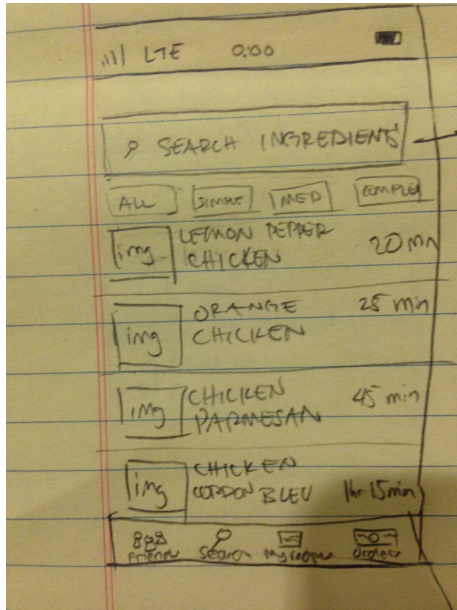 LTE 0:00
SEARCH INGREDIENTS
ALL SIMPLE MED COMPLEX
img LEMON PEPPER
CHICKEN 20 MN
img ORANGE 25 min
CHICKEN
img CHICKEN 45 min
PARMESAN
img CHICKEN
CORDON BLEU 1hr 15min
Friends Search My recipes